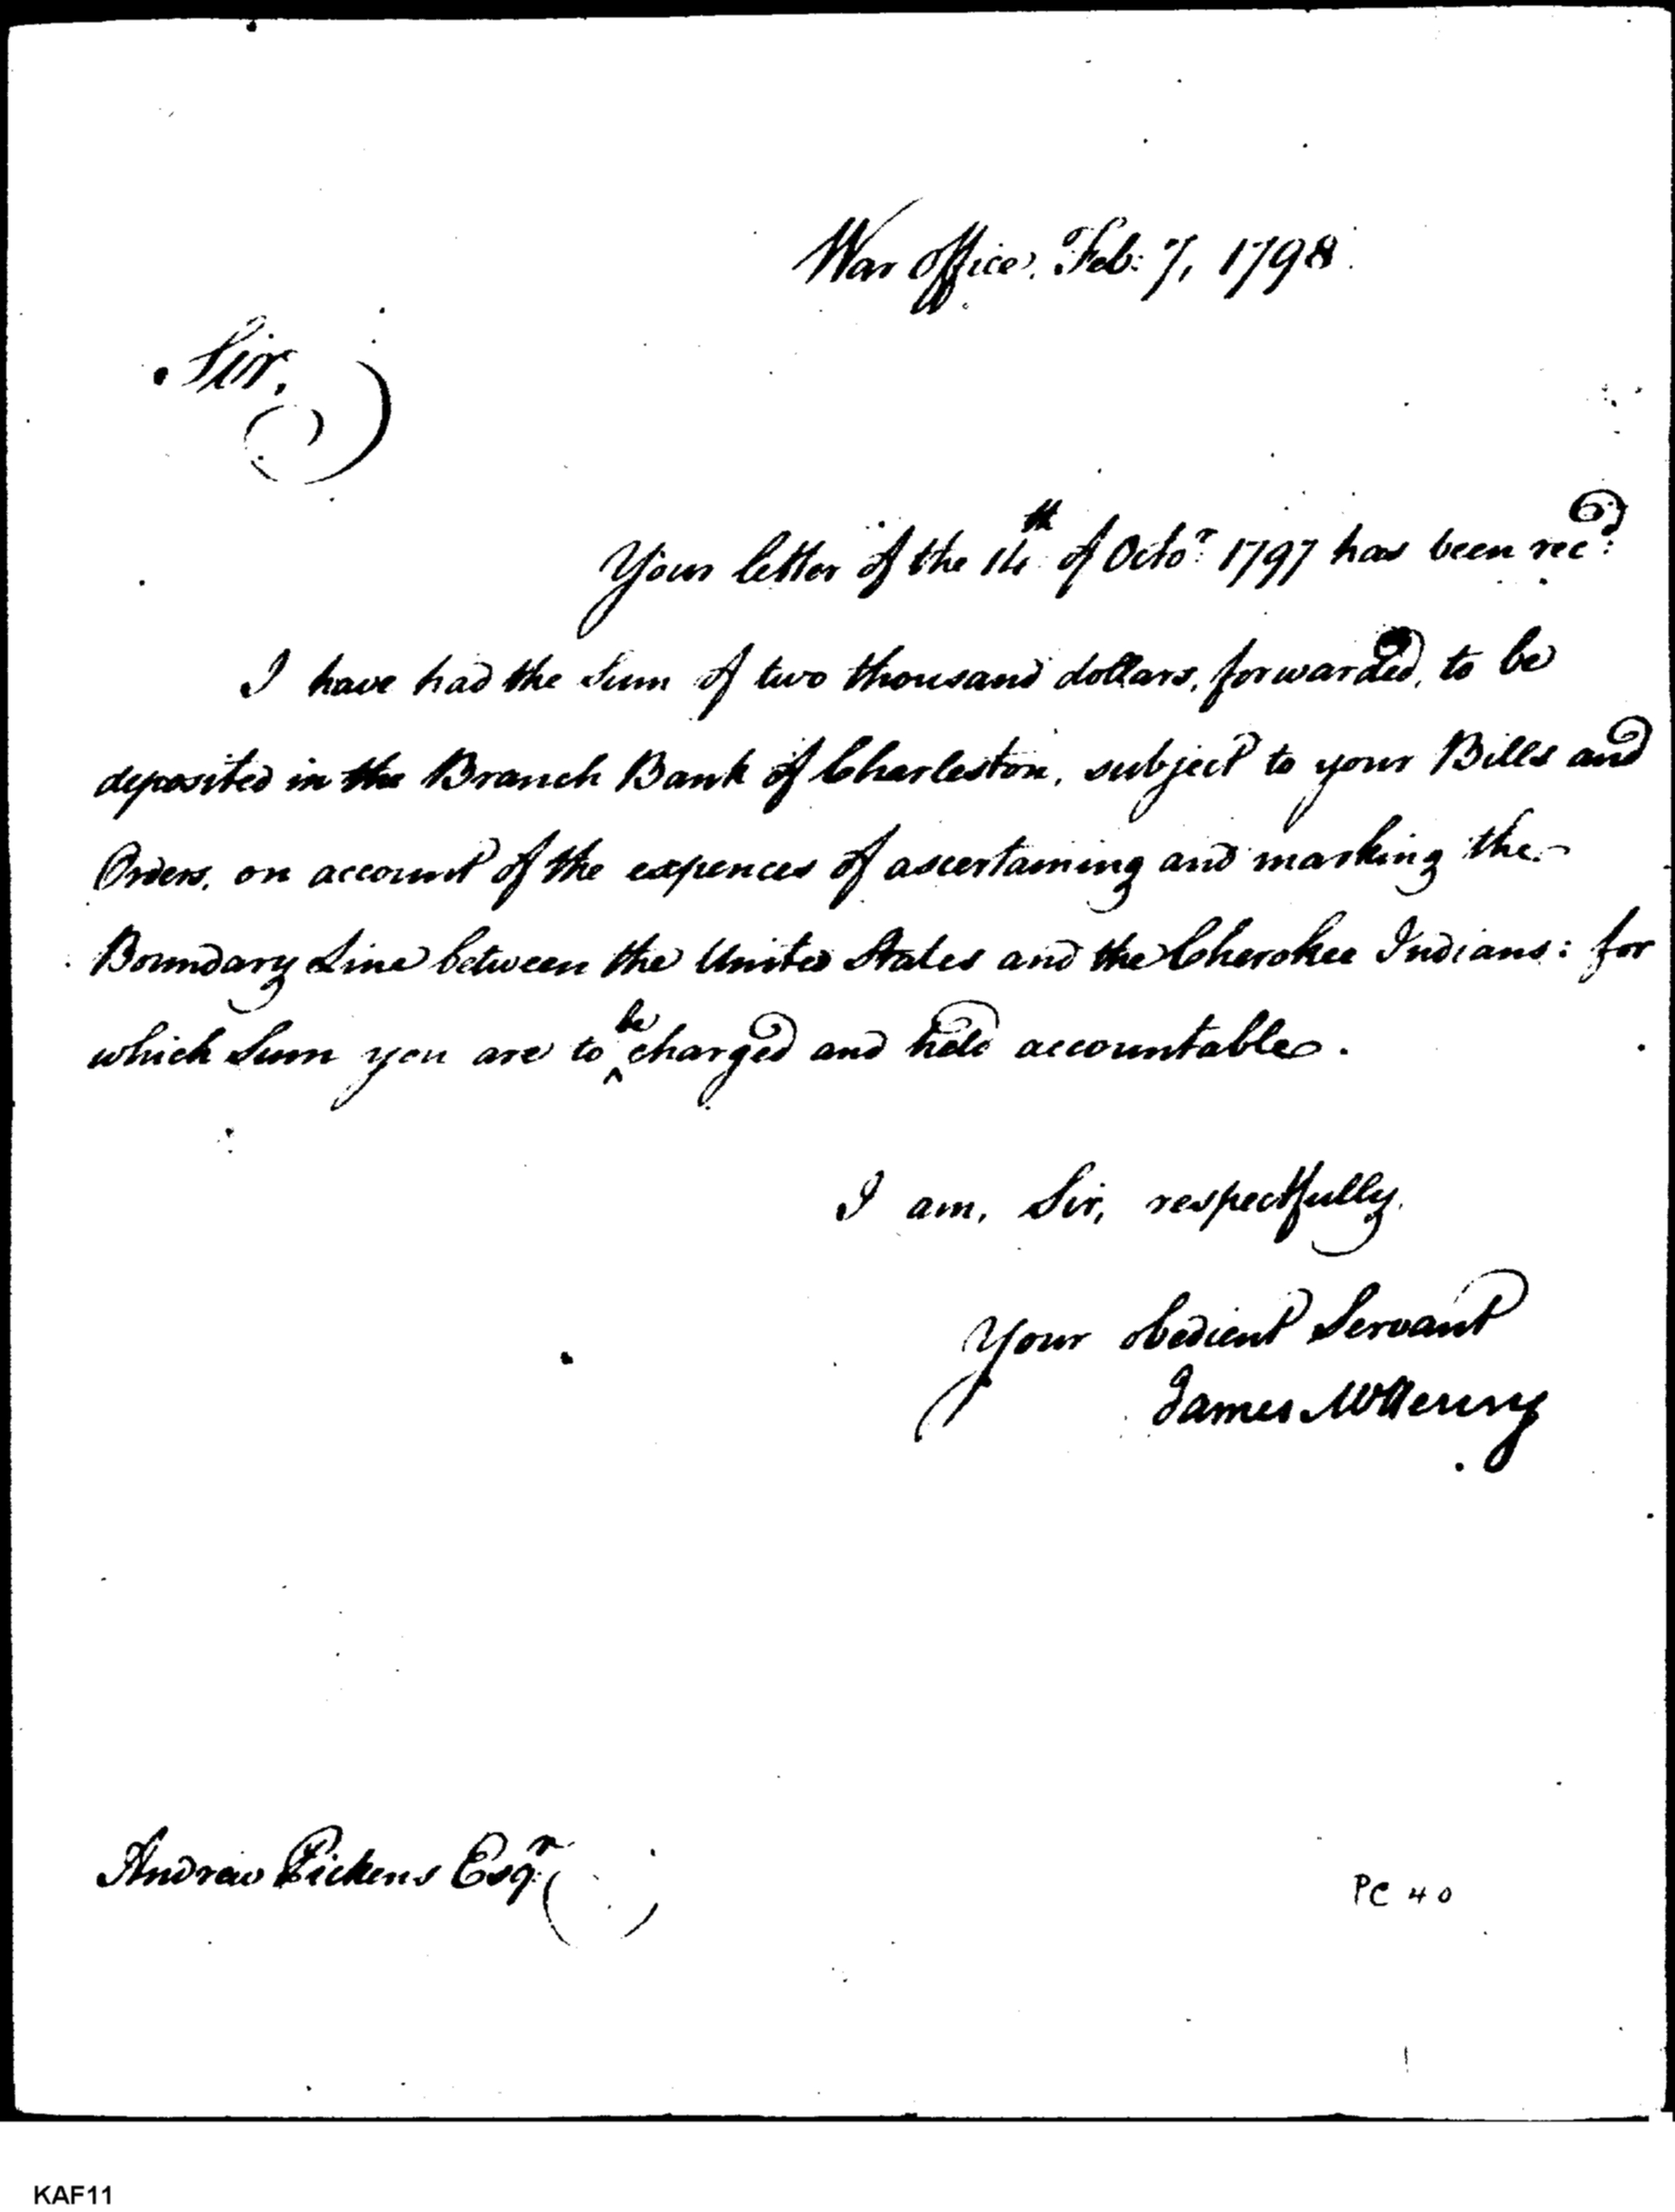 War Office, Feb: 7, 1798.
Sir,
Your letter of the 14th of Octor. 1797 has been recd.
I have had the Sum of two thousand dollars, forwarded, to be
deposited in the Branch Bank of Charleston, subject to your Bills and
Orders, on account of the expences of ascertaining and marking the
Boundary Line between the United States and the Cherokee Indians: for
which Sum you are to be charged and held accountable.
I am, Sir, respectfully,
Your obedient Servant
James McHenry
Andrew Pickens Esqr.
PC 40
KAF11